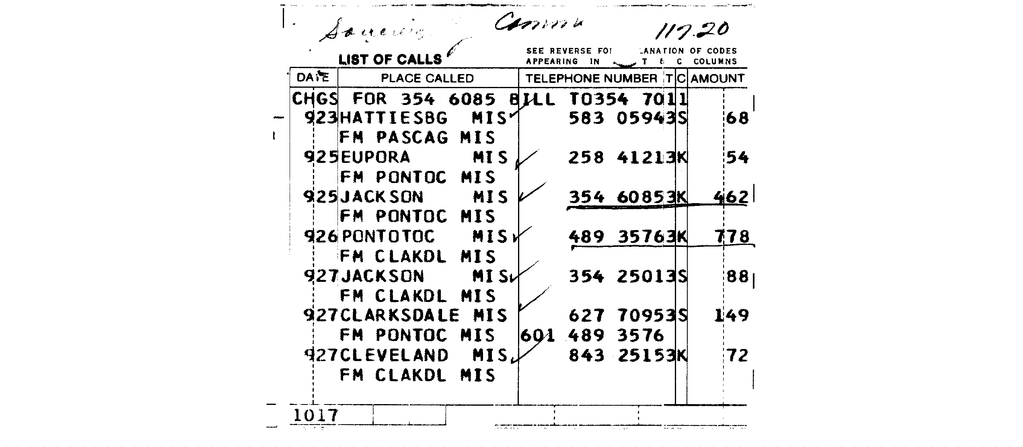 117.20
LIST OF CALLS
SEE REVERSE FOR ANATION OF CODES
APPEARING IN T & C COLUMNS
DATE PLACE CALLED TELEPHONE NUMBER T C AMOUNT
CHGS FOR 354 6085 BILL TO354 7011
923 HATTIESBG MIS 583 0594 3 S 68
FM PASCAG MIS
925 EUPORA MIS 258 4121 3 K 54
FM PONTOC MIS
925 JACKSON MIS 354 6085 3 K 462
FM PONTOC MIS
926 PONTOTOC MIS 489 3576 3 K 778
FM CLAKDL MIS
927 JACKSON MIS 354 2501 3 S 88
FM CLAKDL MIS
927 CLARKSDALE MIS 627 7095 3 S 149
FM PONTOC MIS 601 489 3576
927 CLEVELAND MIS 843 2515 3 K 72
FM CLAKDL MIS
1017